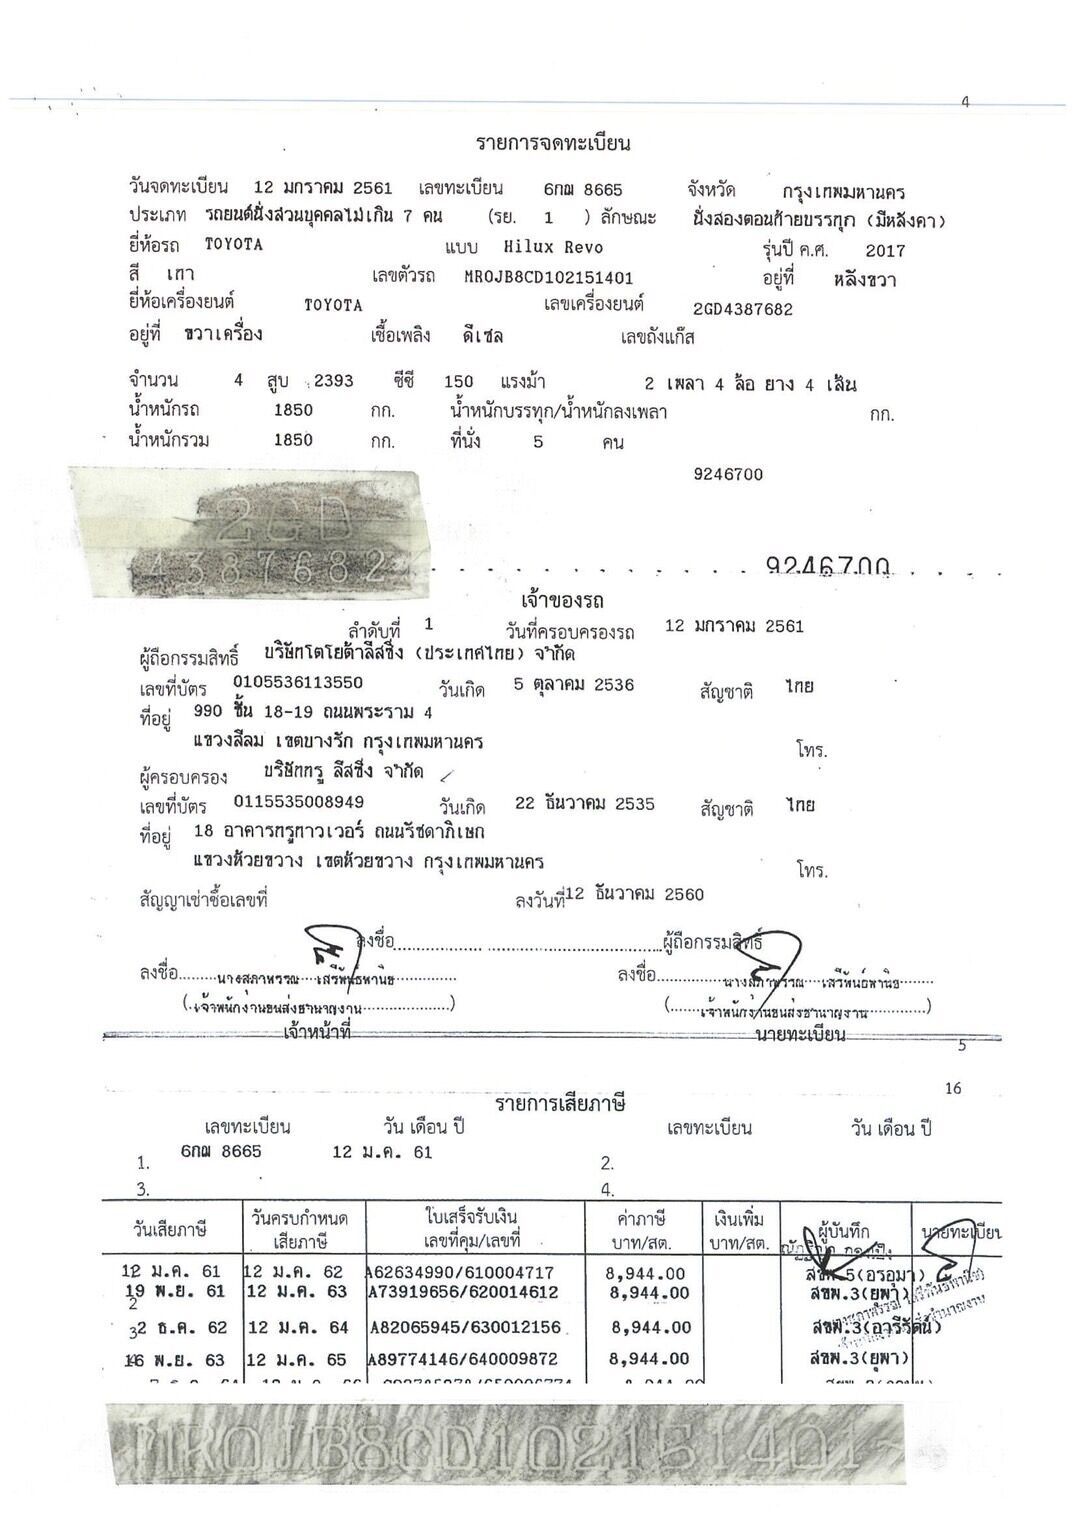 4
รายการจดทะเบียน
วันจดทะเบียน 12 มกราคม 2561 เลขทะเบียน 6กฒ 8665 จังหวัด กรุงเทพมหานคร
ประเภท รถยนต์นั่งส่วนบุคคลไม่เกิน 7 คน (รย. 1 ) ลักษณะ นั่งสองตอนท้ายบรรทุก (มีหลังคา)
ยี่ห้อรถ TOYOTA แบบ Hilux Revo รุ่นปี ค.ศ. 2017
สี เทา เลขตัวรถ MR0JB8CD102151401 อยู่ที่ หลังขวา
ยี่ห้อเครื่องยนต์ TOYOTA เลขเครื่องยนต์ 2GD4387682
อยู่ที่ ขวาเครื่อง เชื้อเพลิง ดีเซล เลขถังแก๊ส
จำนวน 4 สูบ 2393 ซีซี 150 แรงม้า 2 เพลา 4 ล้อ ยาง 4 เส้น
น้ำหนักรถ 1850 กก. น้ำหนักบรรทุก/น้ำหนักลงเพลา กก.
น้ำหนักรวม 1850 กก. ที่นั่ง 5 คน
9246700
2GD
4387682
9246700
เจ้าของรถ
ลำดับที่ 1 วันที่ครอบครองรถ 12 มกราคม 2561
ผู้ถือกรรมสิทธิ์ บริษัทโตโยต้าลีสซิ่ง (ประเทศไทย) จำกัด
เลขที่บัตร 0105536113550 วันเกิด 5 ตุลาคม 2536 สัญชาติ ไทย
ที่อยู่ 990 ชั้น 18-19 ถนนพระราม 4
แขวงสีลม เขตบางรัก กรุงเทพมหานคร โทร.
ผู้ครอบครอง บริษัททรู ลีสซิ่ง จำกัด
เลขที่บัตร 0115535008949 วันเกิด 22 ธันวาคม 2535 สัญชาติ ไทย
ที่อยู่ 18 อาคารทรูทาวเวอร์ ถนนรัชดาภิเษก
แขวงห้วยขวาง เขตห้วยขวาง กรุงเทพมหานคร โทร.
สัญญาเช่าซื้อเลขที่ ลงวันที่ 12 ธันวาคม 2560
ลงชื่อ ผู้ถือกรรมสิทธิ์
ลงชื่อ นางสุภาพรรณ เสรีพันธ์พานิช ลงชื่อ นางสุภาพรรณ เสรีพันธ์พานิช
(เจ้าพนักงานขนส่งชำนาญงาน) (เจ้าพนักงานขนส่งชำนาญงาน)
เจ้าหน้าที่ นายทะเบียน
5
16
รายการเสียภาษี
เลขทะเบียน วัน เดือน ปี เลขทะเบียน วัน เดือน ปี
1. 6กฒ 8665 12 ม.ค. 61 2.
3. 4.
วันเสียภาษี วันครบกำหนดเสียภาษี ใบเสร็จรับเงิน เลขที่คุม/เลขที่ ค่าภาษี บาท/สต. เงินเพิ่ม บาท/สต. ผู้บันทึก นายทะเบียน
12 ม.ค. 61 12 ม.ค. 62 A62634990/610004717 8,944.00 สขพ.5(อรอุมา)
19 พ.ย. 61 12 ม.ค. 63 A73919656/620014612 8,944.00 สขพ.3(ยุพา)
2
3 2 ธ.ค. 62 12 ม.ค. 64 A82065945/630012156 8,944.00 สขพ.3(อารีรัตน์)
16 พ.ย. 63 12 ม.ค. 65 A89774146/640009872 8,944.00 สขพ.3(ยุพา)
MR0JB8CD102151401